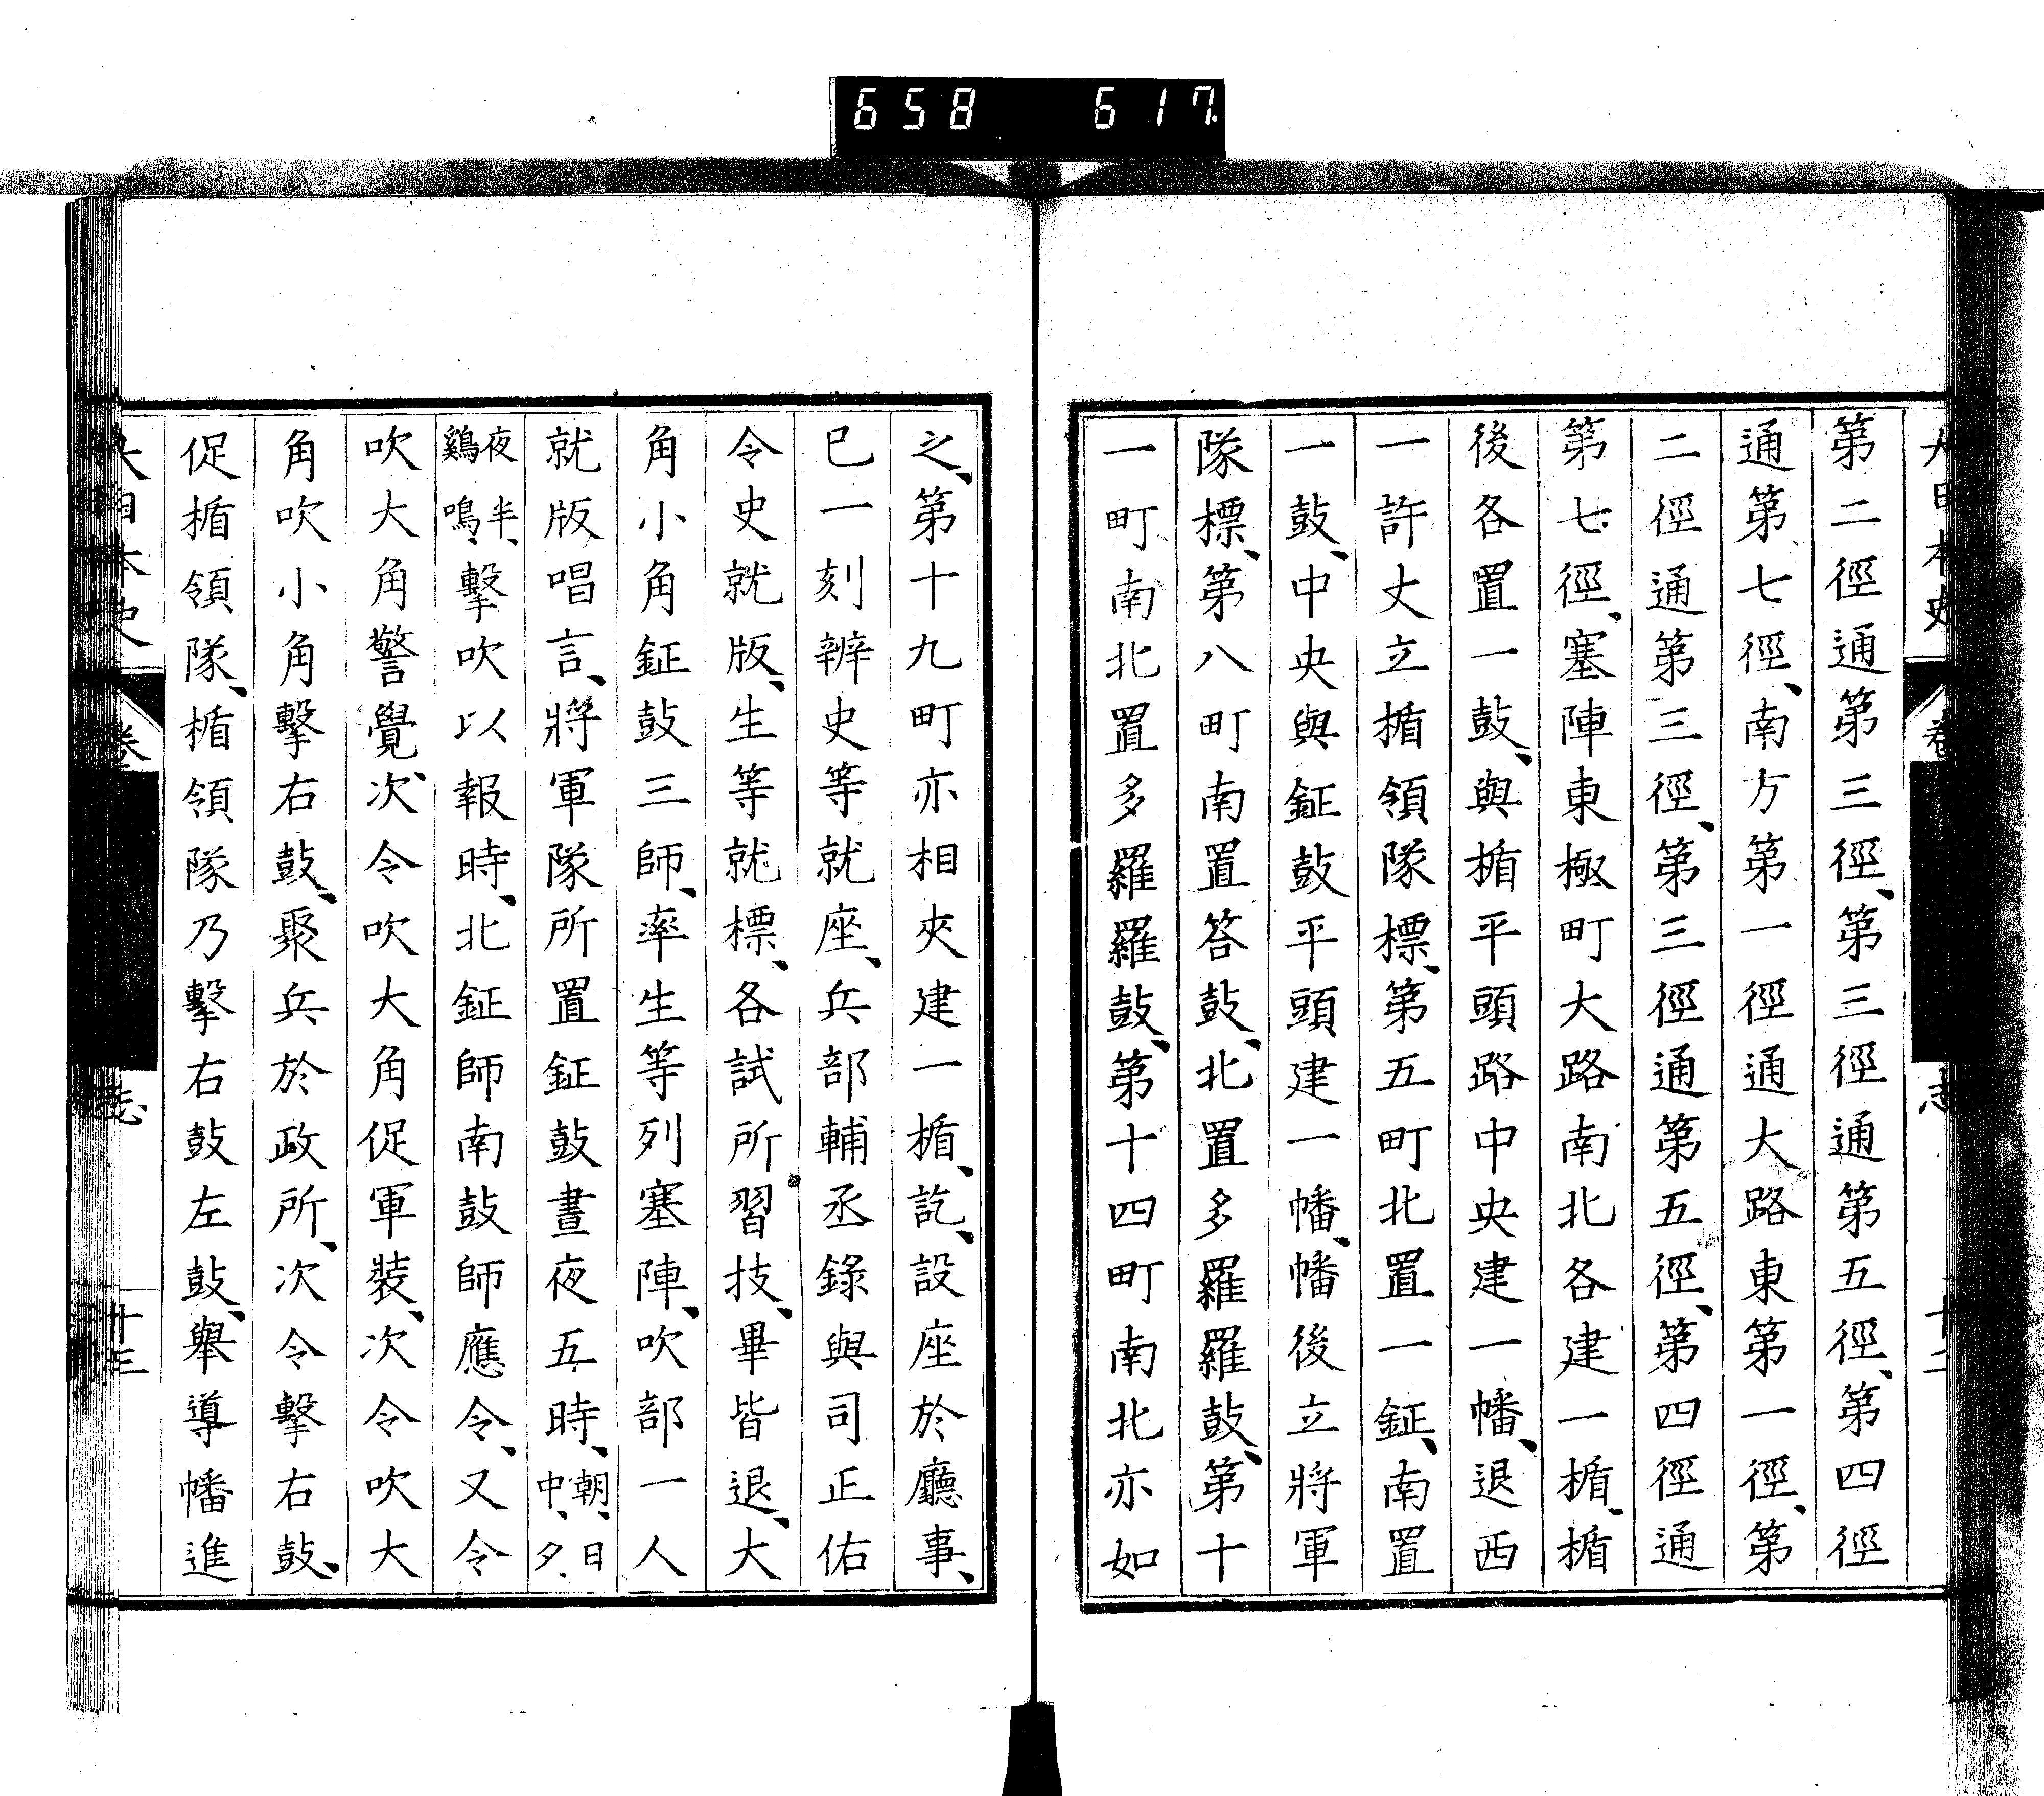 658 617
大日本史 卷 志 十二
第二徑通第三徑、第三徑通第五徑、第四徑
通第七徑、南方第一徑通大路東第一徑、第
二徑通第三徑、第三徑通第五徑、第四徑通
第七徑、塞陣東極町大路南北各建一楯、楯
後各置一鼓、與楯平頭路中央建一幡、退西
一許丈立楯領隊標、第五町北置一鉦、南置
一鼓、中央與鉦鼓平頭建一幡、幡後立將軍
隊標、第八町南置答鼓、北置多羅羅鼓、第十
一町南北置多羅羅鼓、第十四町南北亦如
之、第十九町亦相夾建一楯、訖、設座於廳事、
巳一刻辨史等就座、兵部輔丞錄與司正佑
令史就版、生等就標、各試所習技、畢皆退、大
角小角鉦鼓三師、率生等列塞陣、吹部一人
就版唱言、將軍隊所置鉦鼓晝夜五時、朝、日中、夕、
夜半、鷄鳴、擊吹以報時、北鉦師南鼓師應令、又令
吹大角警覺、次令吹大角促軍裝、次令吹大
角吹小角擊右鼓、聚兵於政所、次令擊右鼓、
促楯領隊、楯領隊乃擊右鼓左鼓、舉導幡進
大日本史 卷 志 十三